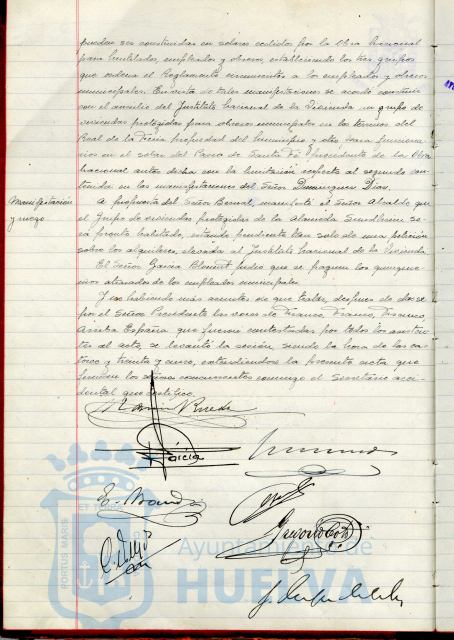 puedan ser construidas en solares cedidos por la Obra Nacional
para mutilados, empleados y obreros, estableciendo los tres grupos
que ordena el Reglamento a los empleados y obreros
municipales. En vista de tales manifestaciones se acordó construir
con el auxilio del Instituto Nacional de la Vivienda un grupo de
viviendas protegidas para obreros municipales en los terrenos del
Real de la Feria propiedad del Municipio y otro para funciona-
rios en el solar del Paseo de Santa Fé procedente de la Obra
Nacional antes dicha con la limitación respecto al segundo con-
tenida en las manifestaciones del Señor Dominguez Diaz.
Manifestación
y ruego
A propuesta del Señor Bernal, manifestó el Señor Alcalde que
el Grupo de viviendas protegidas de la Alameda Sundheim se-
rá pronto habitado, estando pendiente tan solo de una petición
sobre los alquileres, elevada al Instituto Nacional de la Vivienda.
El Señor Garcia pidió que se paguen los quinque-
nios atrasados de los empleados municipales.
Y no habiendo más asuntos de que tratar, despues de darse
por el Señor Presidente las voces de Franco, Franco, Franco,
Arriba España que fueron contestadas por todos los asisten-
tes al acto, se levantó la sesión siendo la hora de las ca-
torce y treinta y cinco, extendiéndose la presente acta que
firman los señores concurrentes conmigo el Secretario acci-
dental que certifico.
Garcia
ET TERRAE
PORTUS MARIS
Ayuntamiento de
HUELVA